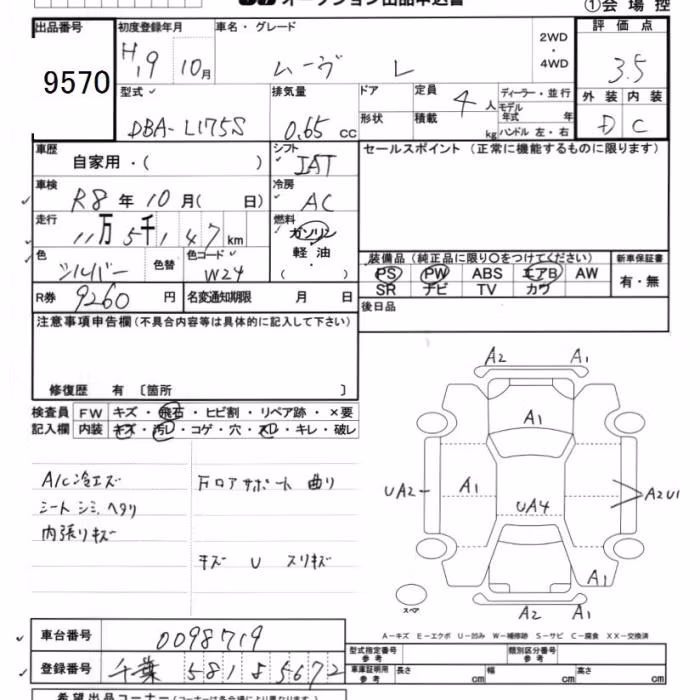 オークション出品申込書
①会場控
出品番号 9570
初度登録年月 H19 10月
車名・グレード ムーヴ L
2WD・4WD
評価点 3.5
外装 内装
D C
型式 DBA-L175S
排気量 0.65 cc
ドア
形状
定員 4人
積載 kg
ディーラー・並行
モデル年式 年
ハンドル 左・右
車歴 自家用・( )
シフト IAT
セールスポイント (正常に機能するものに限ります)
車検 R8年10月( 日)
冷房 AC
走行 11万5千147km
燃料 ガソリン・軽油・( )
色 シルバー 色替
色コード W24
装備品 (純正品に限り〇をつけてください)
新車保証書
PS PW ABS エアB AW
SR ナビ TV カワ
有・無
R券 9260円
名変通知期限 月 日
後日品
注意事項申告欄 (不具合内容等は具体的に記入して下さい)
修復歴 有 〔箇所 〕
検査員記入欄
FW キズ・飛石・ヒビ割・リペア跡・×要
内装 キズ・汚レ・コゲ・穴・スレ・キレ・破レ
A/C冷エズ
シート シミ ヘタリ
内張リキズ
キズ U スリキズ
A2 A1
A1
UA2 A1 UA4 A2U1
A1
スペア
A2 A1
A-キズ E-エクボ U-凹み W-補修跡 S-サビ C-腐食 XX-交換済
車台番号 0098719
登録番号 千葉 581 よ 5672
型式指定番号 参考
類別区分番号 参考
車庫証明用 参考
長さ cm 幅 cm 高さ cm
希望出品コーナー (コーナーは各会場により異なります)